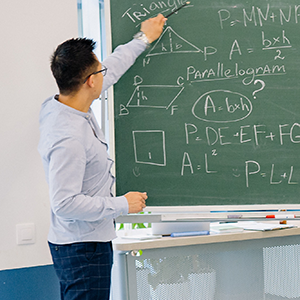 Triangle
P=MN+NP
h
M P
A = b×h / 2
Parallelogram
D C
h
B
A=b×h ?
P=DE+EF+FG
A=L²
P=L+L